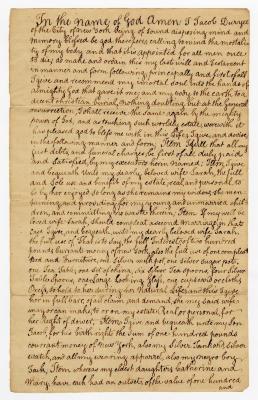 In the name of God Amen I Jacob Duryee
of the City of New York being of sound disposing mind and
memory blessed be god therefore, calling to mind the mortali=
ty of my body and that it is appointed for all men once
to die do make and ordain this my last will and Testament
in manner and form following, principally and first of all
I give and recommend my immortal soul into the hands of
almighty God that gave it me; and my body to the earth, to a
decent christian burial, nothing doubting, but at the General
resurrection, I shall receive the same again by the mighty
power of God, and as touching such worldly estate, wherewith it
has pleased god to bless me with in this Life, I give, and devise
in the following manner and form, Item I Will that all my
just debts, and funeral charges be first of all duly paid
and satisfied, by my executors herein named, Item, I give
and bequeath unto my dearly beloved wife Sarah, the full
and sole use and benefit of my estate, real and personal, to
be by her enjoyed so long as she remains my widow, she main=
taining and providing for my young and unmarried chil=
dren, and committing no waste therein, Item If my well be
loved wife Sarah, should contract a second Marriage, in that
Case I give, and bequeath unto my dearly beloved wife Sarah
the full use of, that is to say the full Interest of two hundred
pounds current money of New York, also the full use of one compleat
Bed and Furniture, one Silver milk pot, one Silver Sugar pott,
one Tea Table, one set of china, six Silver Tea Spoons, four Silver
Table Spoons, one large Looking Glass, one cupboard or chest
these, to hold her during her Natural Life, and this I give
her in full barr, of all claim, and demand, she my said wife
may or can make, to or on my estate Real, or personal, for
her right of dower, Item, I give and bequeath unto my Son
Jacob, for his birth right the Sum of one hundred pounds
courant money of New York, also my Silver Tankard, Silver
watch, and all my wearing apparel, also my negro boy
Jack, Item whereas my eldest daughters Catherine and
Mary, have each had an outset, of the value of one hundred
and